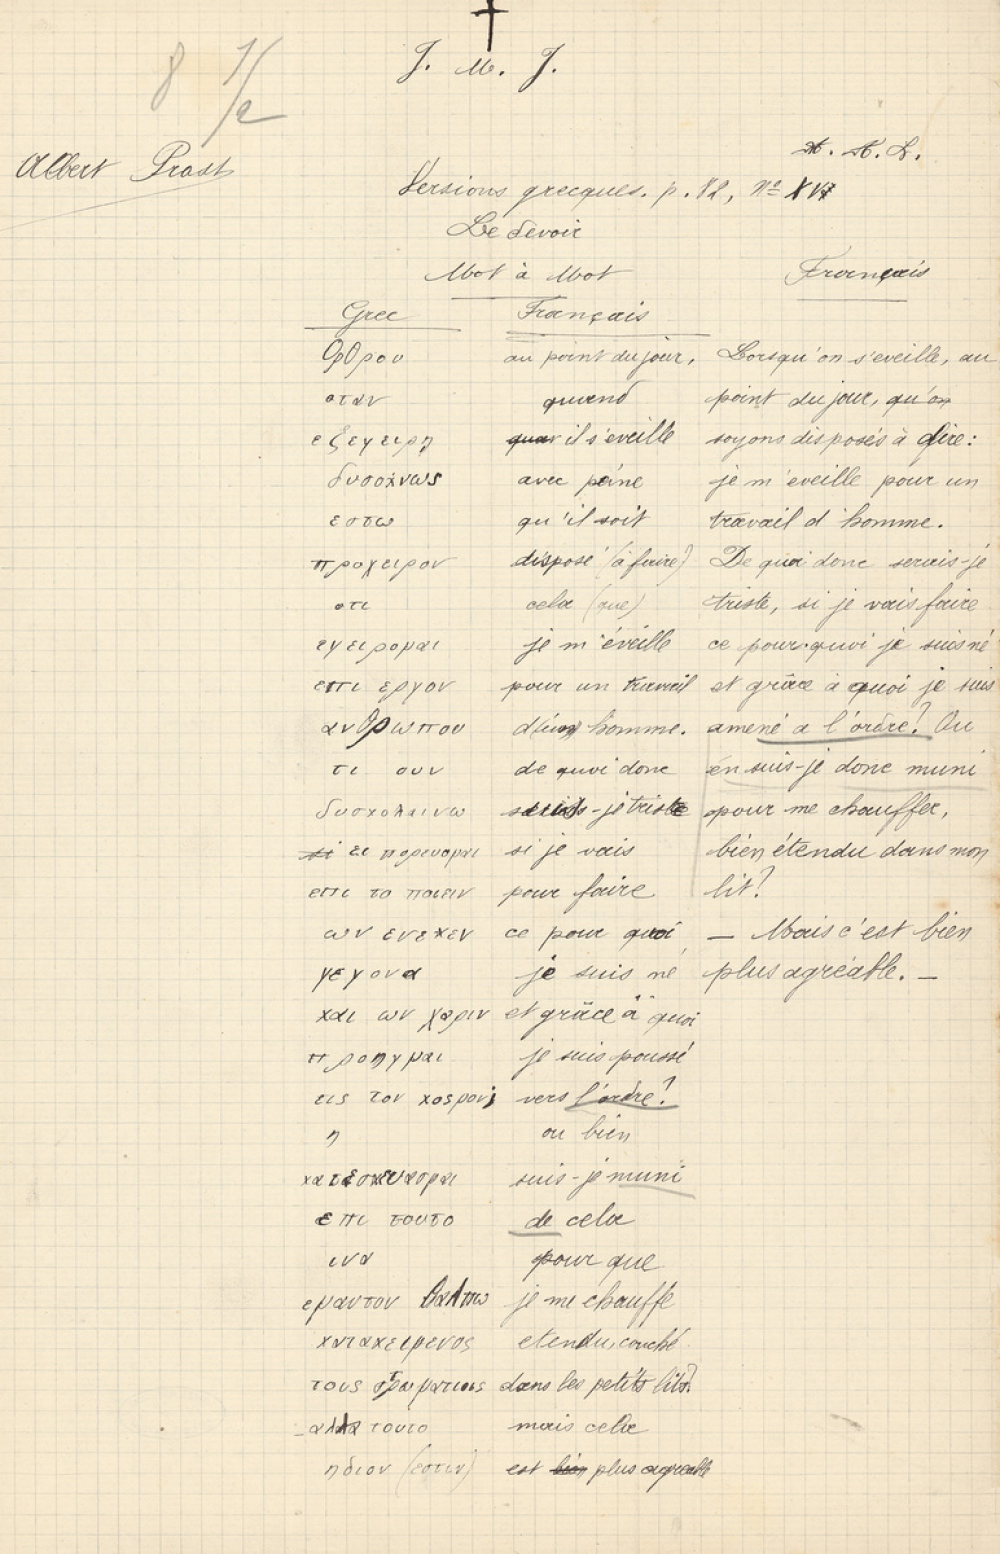 J. M. J.
8 1/2
Albert Prost
Versions grecques. p. 82, Nº XVI
Le devoir
Mot à Mot
Français
Grec Français
ορθρου au point du jour,
οταν quand
εξεγειρη il s'eveille
δυσοκνως avec peine
εστω qu'il soit
προχειρον disposé (à faire)
οτι cela (que)
εγειρομαι je m'éveille
επι εργον pour un travail
ανθρωπου homme.
τι ουν de quoi donc
δυσκολαινω -je triste
ει πορευομαι si je vais
επι το ποιειν pour faire
ων ενεκεν ce pour quoi
γεγονα je suis né
και ων χαριν et grâce à quoi
προηγμαι je suis poussé
εις τον κοσμον; vers l'ordre?
η ou bien
κατεσκευασμαι suis-je muni
επι τουτο de cela
ινα pour que
εμαυτον θαλπω je me chauffe
κατακειμενος etendu, couché
τους dans les petits lits?
αλλα τουτο mais cela
ηδιον (εστιν) est bien plus agreable
Lorsqu'on s'eveille, au
point du jour, qu'on
soyons disposés à dire:
je m'éveille pour un
travail d'homme.
De quoi donc serais-je
triste, si je vais faire
ce pourquoi je suis né
et grâce à quoi je suis
amené a l'ordre? Ou
en suis-je donc muni
pour me chauffer,
bien étendu dans mon
lit?
— Mais c'est bien
plus agréable. —